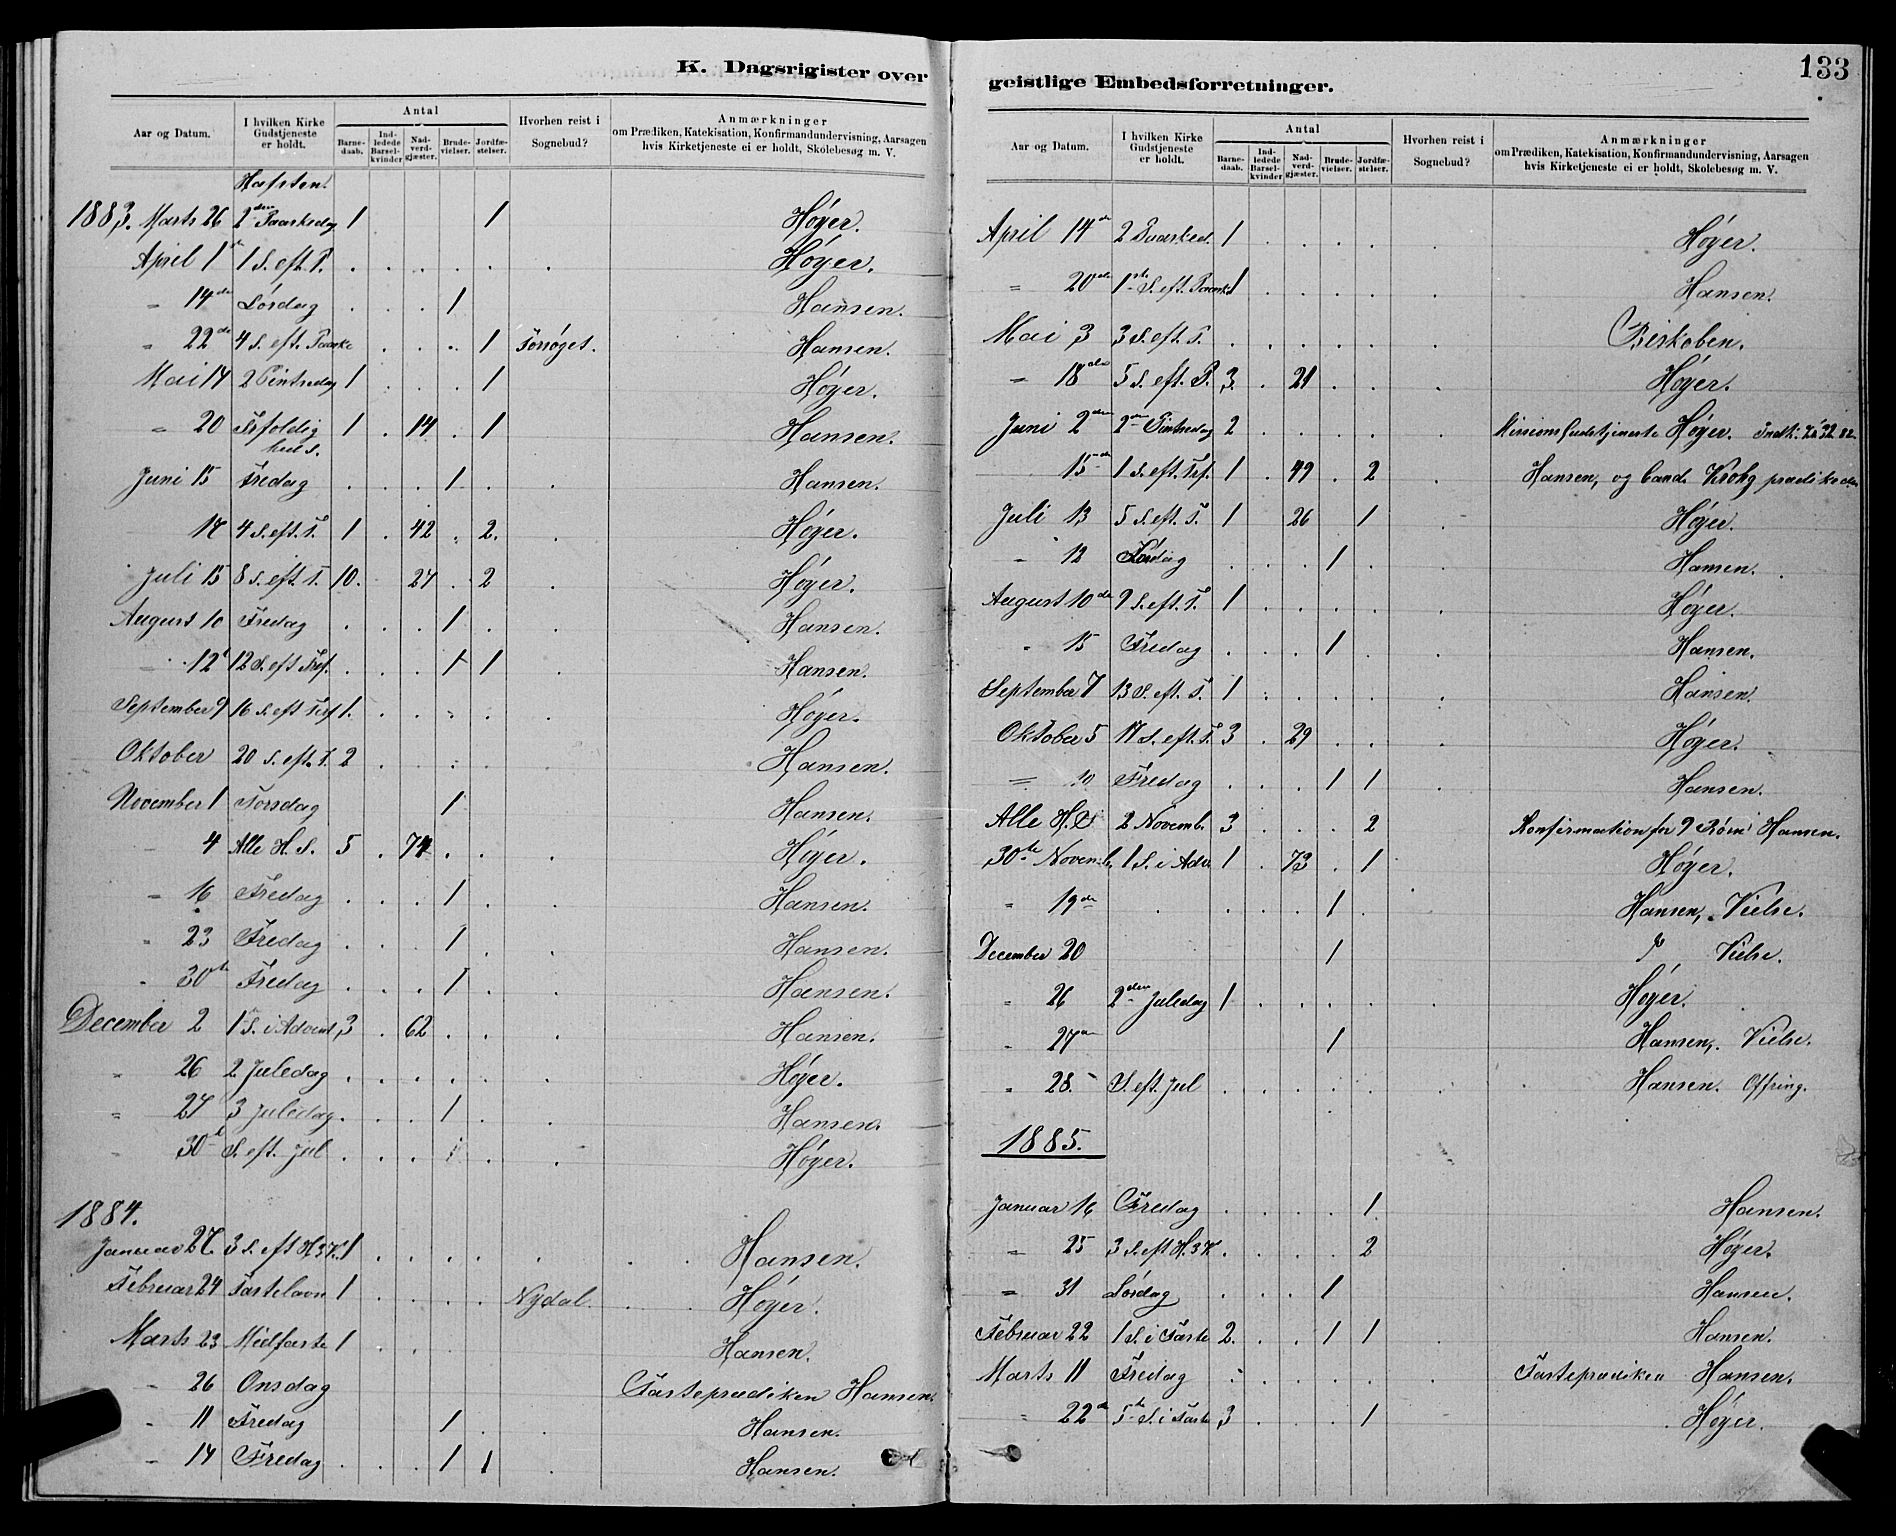 K. Dagsrigister over
Aar og Datum. I hvilken Kirke Gudstjeneste er holdt. Antal Barnedaab. Indledede Barselkvinder Nadverdgjæster. Brudevielser. Jordfæstelser. Hvorhen reist i Sognebud? Anmærkninger om Prædiken, Katekisation, Konfirmandundervisning, Aarsagen hvis Kirketjeneste ei er holdt, Skolebesøg m. V.
Hafsten.
1883. Marts 26 2den Paaskedag 1 1 Høyer.
April 1 1 S. eft. P. . . . . . . Høyer.
" 14de Lørdag . . . 1 Hansen.
" 22de 4 S. eft. Paaske . . . 1 Hansen.
Mai 14 2 Pintsedag 1 . . . 1 Høyer.
" 20 Trefoldigheds S. 1 . 14 . 1 Hansen.
Juni 15 Fredag . . . 1 . . Hansen.
17 4 S. eft. T. 1 . 42 . 2. . Høyer.
Juli 15 8 S. eft. T. 10. 27 . 2 Høyer.
August 10 Fredag . . . 1 . . Hansen.
" 12 12 S. eft Tref. . . . 1 1 . Hansen.
September 9 16 S. eft Tref 1. . . . . . Høyer.
Oktober 20 S. eft. T. 2 . . . Hansen.
November 1 Torsdag 1 Hansen.
4 Alle H. S. 5 . 74 . . . Høyer.
" 16 Fredag . . . 1 . . Hansen.
" 23 Fredag . . . 1 . . Hansen.
" 30te Fredag . . . 1 . . Hansen.
December 2 1 S. i Advent 3 . 62 . . . Hansen.
" 26 2 Juledag . . . . . . Høyer.
" 27 3 Juledag . . . 1 . . Hansen.
" 30te S. eft. Jul . . . 1 . . Høyer.
1884.
Januar 27 3 S. eft H. 3 K. 1 . . . . . Hansen.
Februar 24 Fastelavn 1 . . . . Nydal. Høyer.
Marts 23 Midfaste 1 . . . Hansen.
" 26 Onsdag Fasteprædiken Hansen.
" 11 Fredag 1 . . Hansen.
" 14 Fredag . . . 1 1 . Hansen.
133
geistlige Embedsforretninger.
Aar og Datum. I hvilken Kirke Gudstjeneste er holdt. Antal Barnedaab. Indledede Barselkvinder Nadverdgjæster. Brudevielser. Jordfæstelser. Hvorhen reist i Sognebud? Anmærkninger om Prædiken, Katekisation, Konfirmandundervisning, Aarsagen hvis Kirketjeneste ei er holdt, Skolebesøg m. V.
April 14de 2 Paasked. 1 . . . . . Høyer.
" 20de 1ste S. eft. Paaske 1 . . . . . Hansen.
Mai 3 3 S. eft. P. . . . . . . Biskoben.
" 18de 5 S. eft. P. 3 . 21 . . . Høyer.
Juni 2den 2den Pintsedag 2 . . . . . Missionsgudstjeneste Høyer.
15de 1 S. eft. Tref. 1 . 49 . 2 . Hansen, og Cand. Krohg prædikede
Juli 13 5 S. eft. T. 1 . 26 . 1 . Høyer.
" 12 Lørdag . . . 1 . Hansen.
August 10de 9 S. eft. T. 1 . . . . . Høyer.
" 15 Fredag . . . 1 . Hansen.
September 7 13 S. eft. T. 1 . . . . . Hansen
Oktober 5 17 S. eft. T. 3 . 29 . . . Høyer.
" 10 Fredag . . . 1 1 . Hansen.
Alle H. D 2 Novemb. 3 . . . 2 Konfirmation for 9 Børn Hansen.
30te Novemb. 1 S. i Adv. 1 . 73 . 1 . Høyer.
" 19de . . . . 1 . Hansen, Vielse.
December 20 1 Vielse.
" 26 2den Juledag 1 . . . . . Høyer.
" 27 1 Hansen, Vielse.
" 28. S. eft. Jul . . . . . . Hansen. Offring.
1885.
Januar 16 Fredag . . . . 1. Hansen.
" 25 3 S. eft H. 3 K. . . . . 2 Høyer.
" 31 Lørdag . . . 1 Hansen.
Februar 22 1 S. i Faste 2. . . 1 1 . Hansen.
Marts 11 Fredag . . . . . . Fasteprædiken Hansen.
" 22 5te S. i Faste 3 . . . 1 . Høyer.